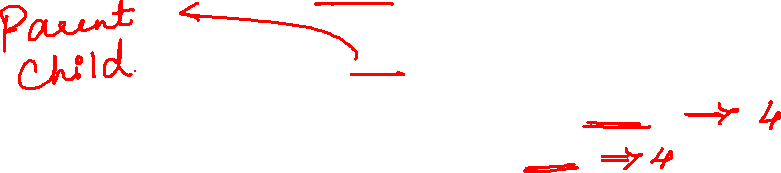 Parent
Child
→ 4
⇒ 4